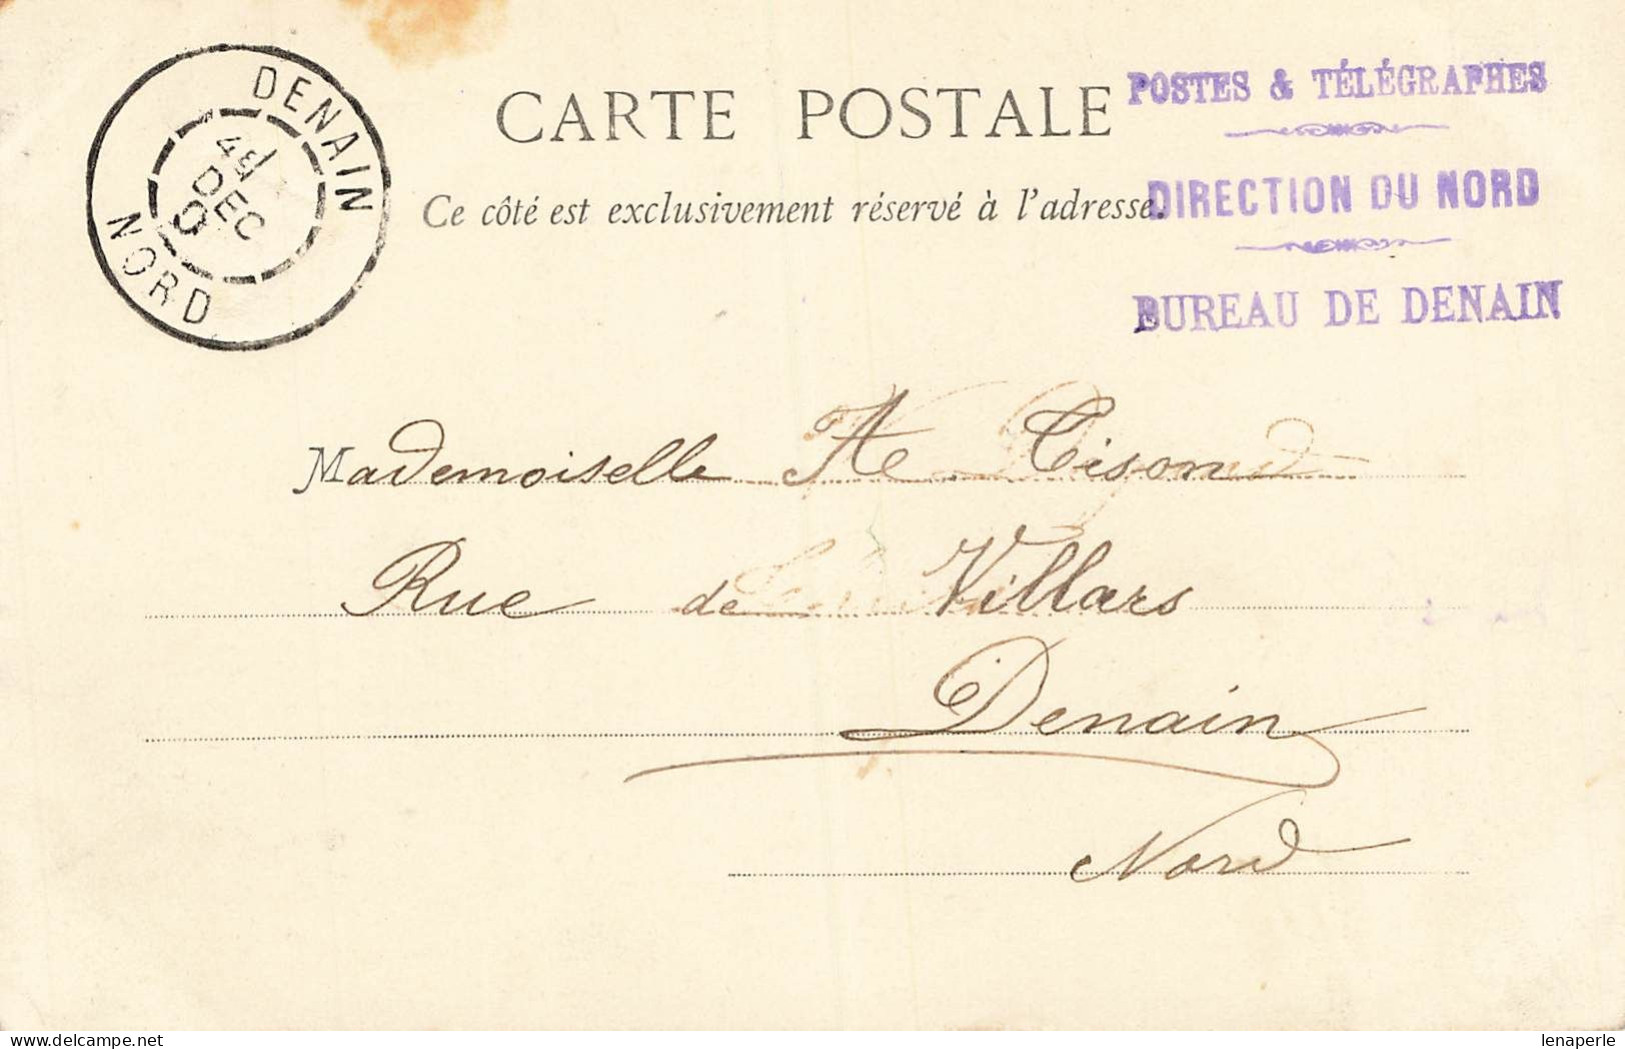 CARTE POSTALE
Ce côté est exclusivement réservé à l'adresse.
POSTES & TÉLÉGRAPHES
DIRECTION DU NORD
BUREAU DE DENAIN
DENAIN
DEC
NORD
Mademoiselle A Tison
Rue de Villars
Denain
Nord
lenaperle